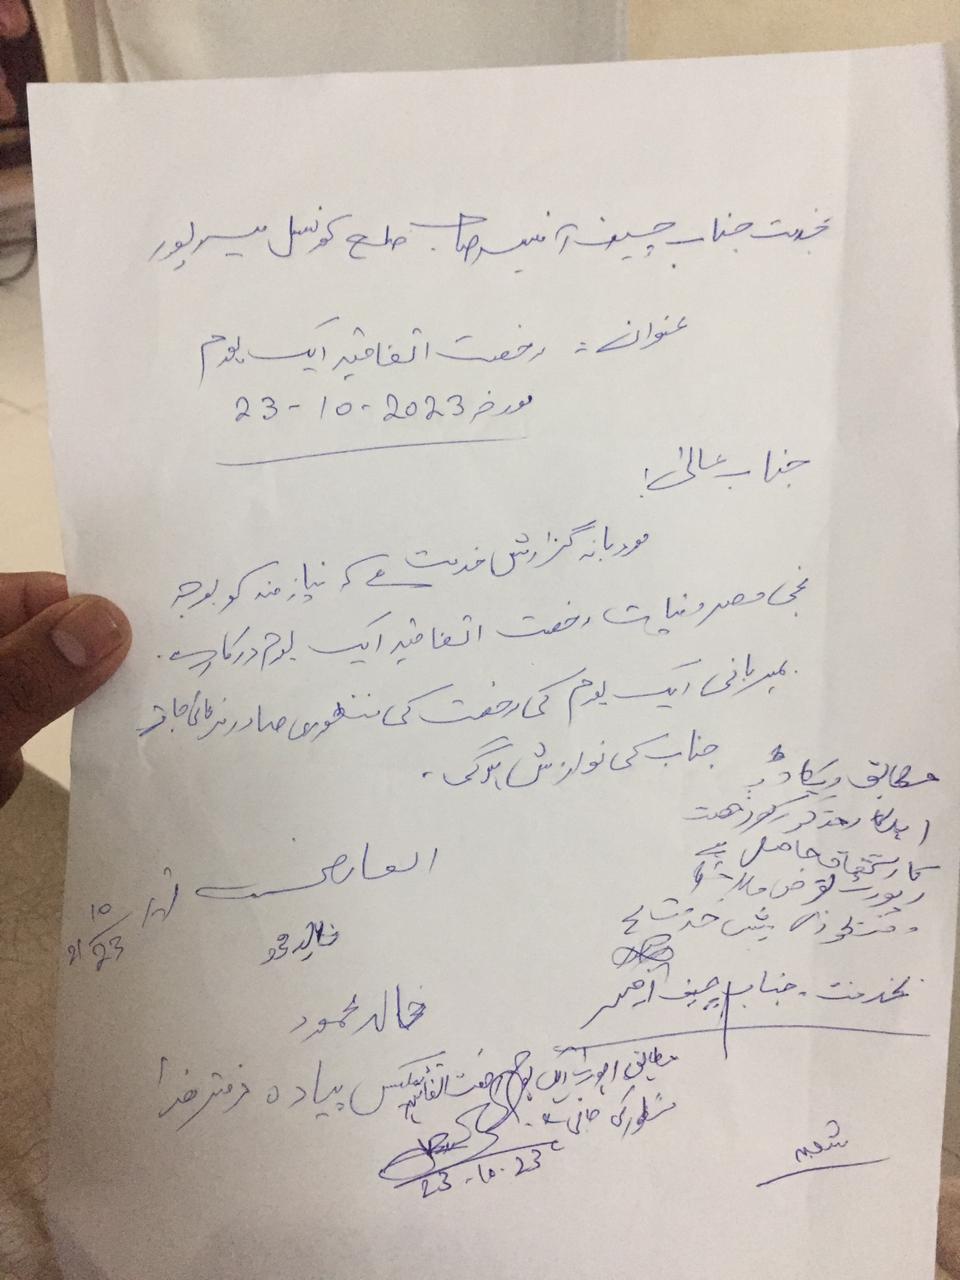 بخدمت جناب چیف آفیسر صاحب ضلع کونسل میرپور
عنوان:۔ رخصت اتفاقیہ ایک یوم
مورخہ 23-10-2023
جناب عالیٰ!
مودبانہ گزارش خدمت ہے کہ نیاز مند کو بوجہ
نجی مصروفیات رخصت اتفاقیہ ایک یوم درکار ہے۔
بمہربانی ایک یوم کی رخصت کی منظوری صادر فرمائی جائے
جناب کی نوازش ہوگی۔
العارض
خالد محمود
خالد محمود
پیادہ دفتر ھذا
10/23
مطابق ریکارڈ
اہلکار مذکور رخصت
کا استحقاق حاصل ہے
رپورٹ بغرض ملاحظہ و
پیش خدمت ہے
بخدمت جناب چیف آفیسر
مطابق رپورٹ ایک یوم رخصت اتفاقیہ
منظور کی جاتی ہے۔
23-10-23